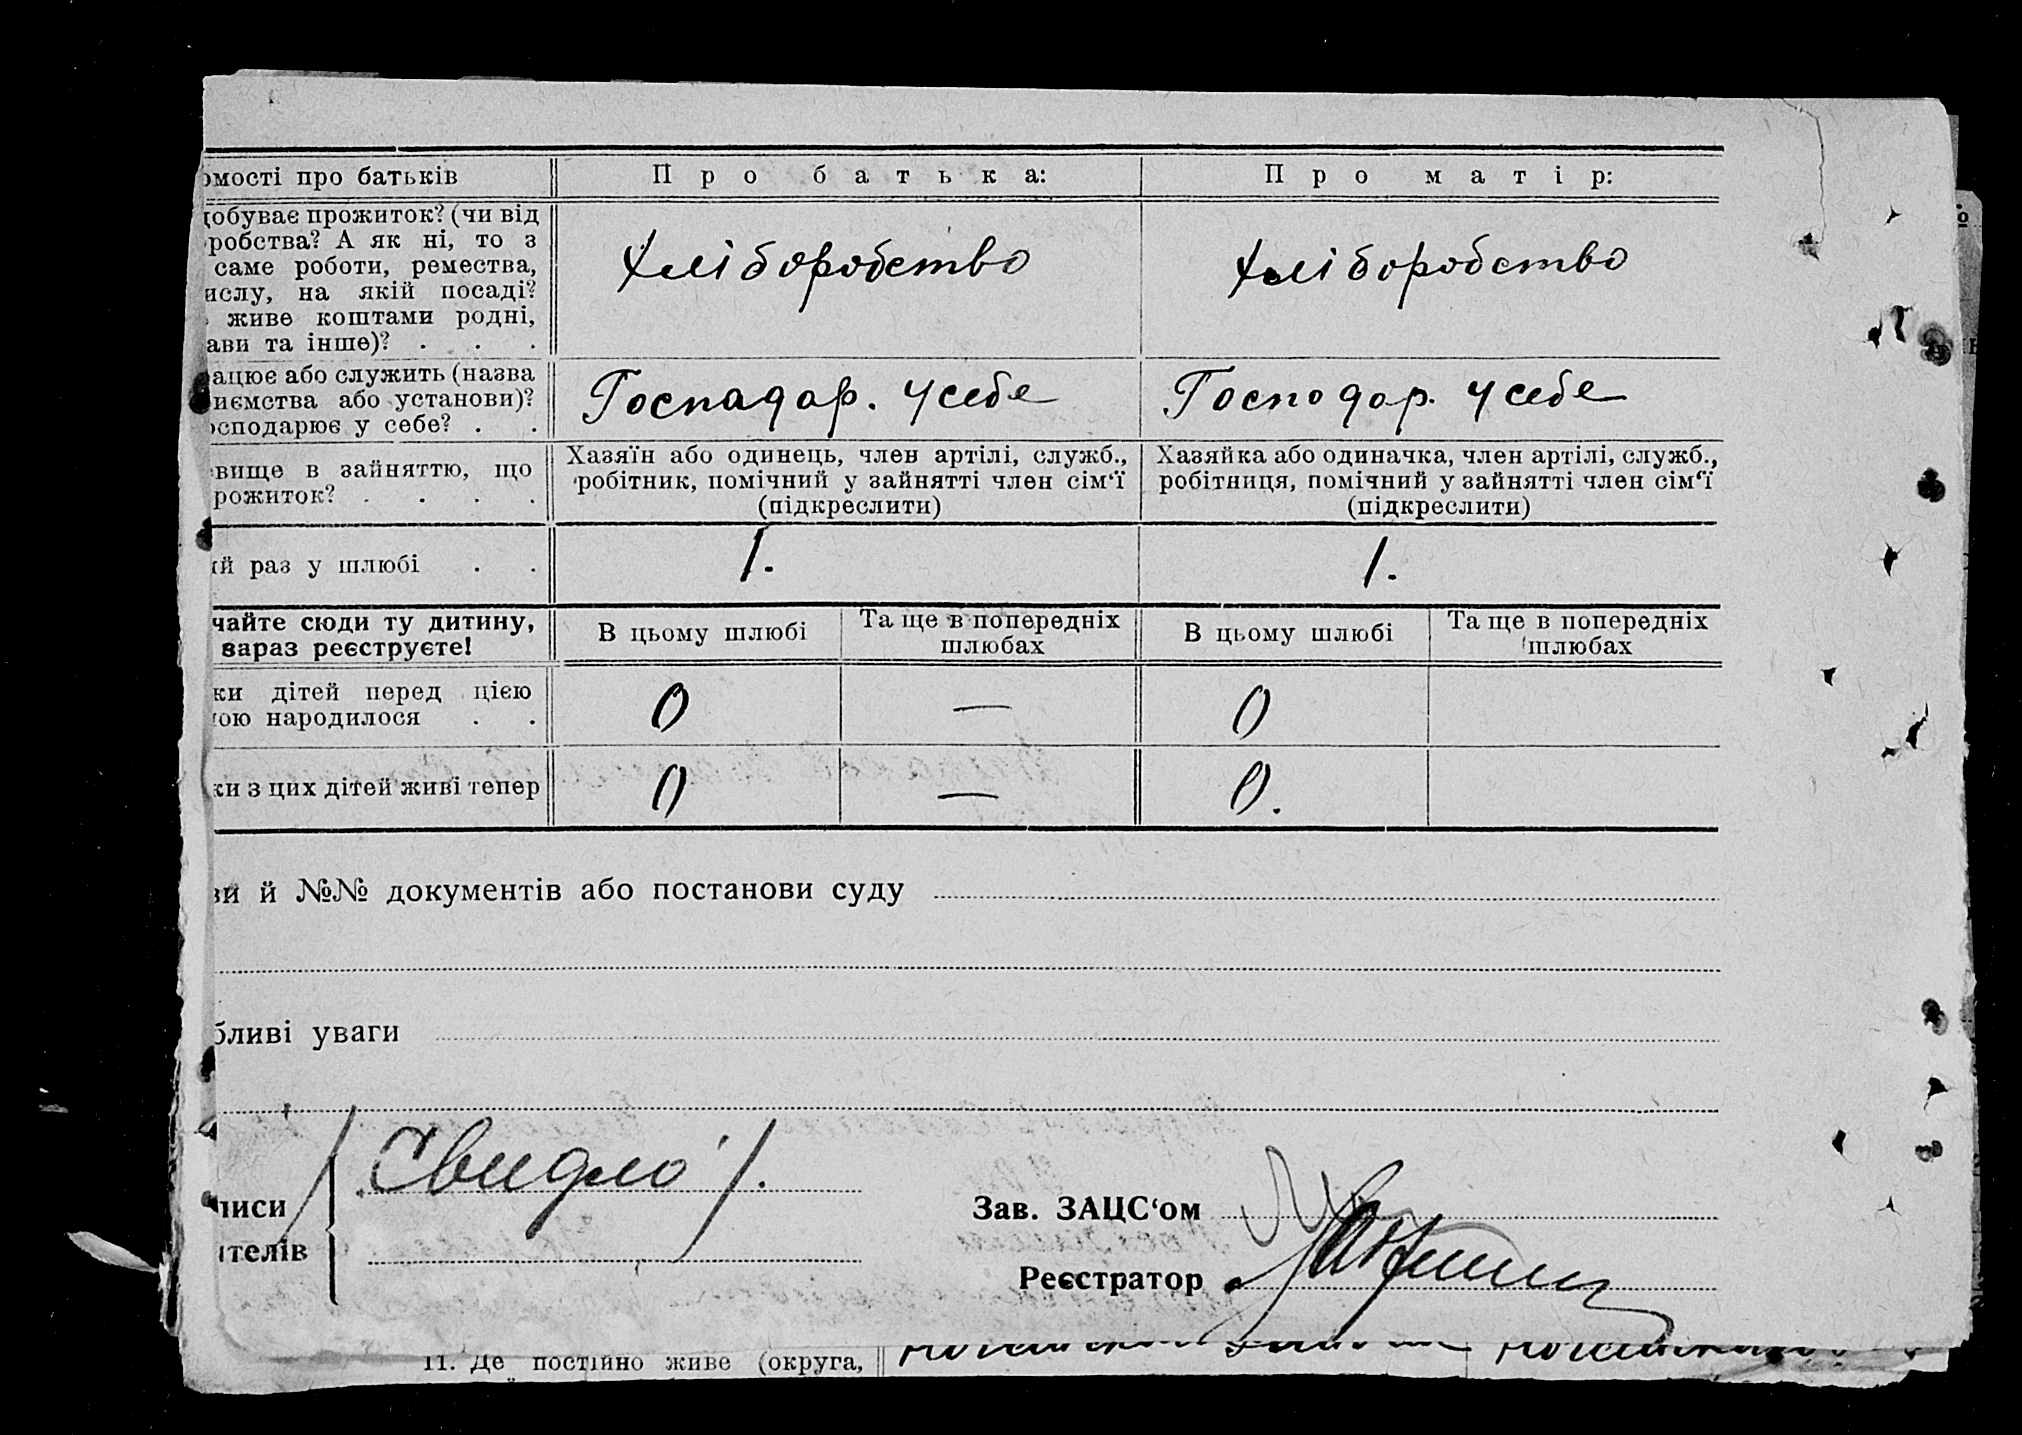 омості про батьків Про батька: Про матір:
добуває прожиток? (чи від
робства? А як ні, то з
саме роботи, ремества,
ислу, на якій посаді?
живе коштами родні,
ави та інше)? . . .
хліборобство хліборобство
ацює або служить (назва
иємства або установи)?
осподарює у себе? . .
Господар. у себе Господар. у себе
вище в зайняттю, що
рожиток? . . . .
Хазяїн або одинець, член артілі, служб.,
робітник, помічний у зайнятті член сім‘ї
(підкреслити)
Хазяйка або одиначка, член артілі, служб.,
робітниця, помічний у зайнятті член сім‘ї
(підкреслити)
ий раз у шлюбі . . 1. 1.
чайте сюди ту дитину,
зараз реєструєте!
В цьому шлюбі
Та ще в попередніх
шлюбах
В цьому шлюбі
Та ще в попередніх
шлюбах
ки дітей перед цією
ною народилося . .
0 — 0
ки з цих дітей живі тепер 0 — 0.
ви й №№ документів або постанови суду
бливі уваги
/ Свидло /.
писи
ителів
Зав. ЗАЦС‘ом
Реєстратор
11. Де постійно живе (округа,